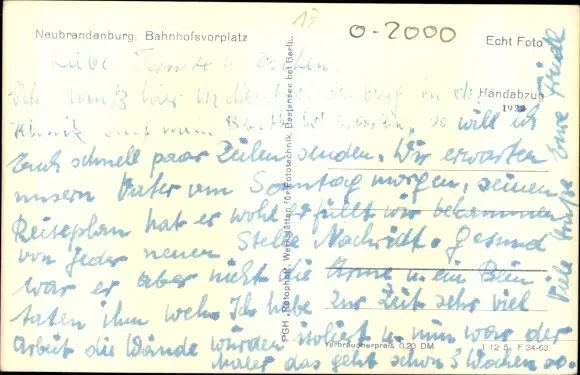 17
o-2000
Neubrandenburg, Bahnhofsvorplatz
Echt Foto
Handabzug
192
Liebe Frau
Ich muß hier in in der
Klinik so will ich
Euch schnell paar Zeilen senden. Wir erwarten
unsern Vater am Sonntag morgen, seinen
Reiseplan hat er wohl erfüllt wir bekommen
von jeder neuen Stelle Nachricht. Gesund
war er aber nicht die Arme u. ein Bein
taten ihm weh. Ich habe zur Zeit sehr viel
Arbeit die Wände wurden isoliert u. nun war der
Maler das geht schon 3 Wochen so.
Viele Grüße Eure
PGH „Rotophot", Werkstätten für Fototechnik, Bestensee bei Berlin
Verbraucherpreis 0,20 DM
I 12 5 F 34-63